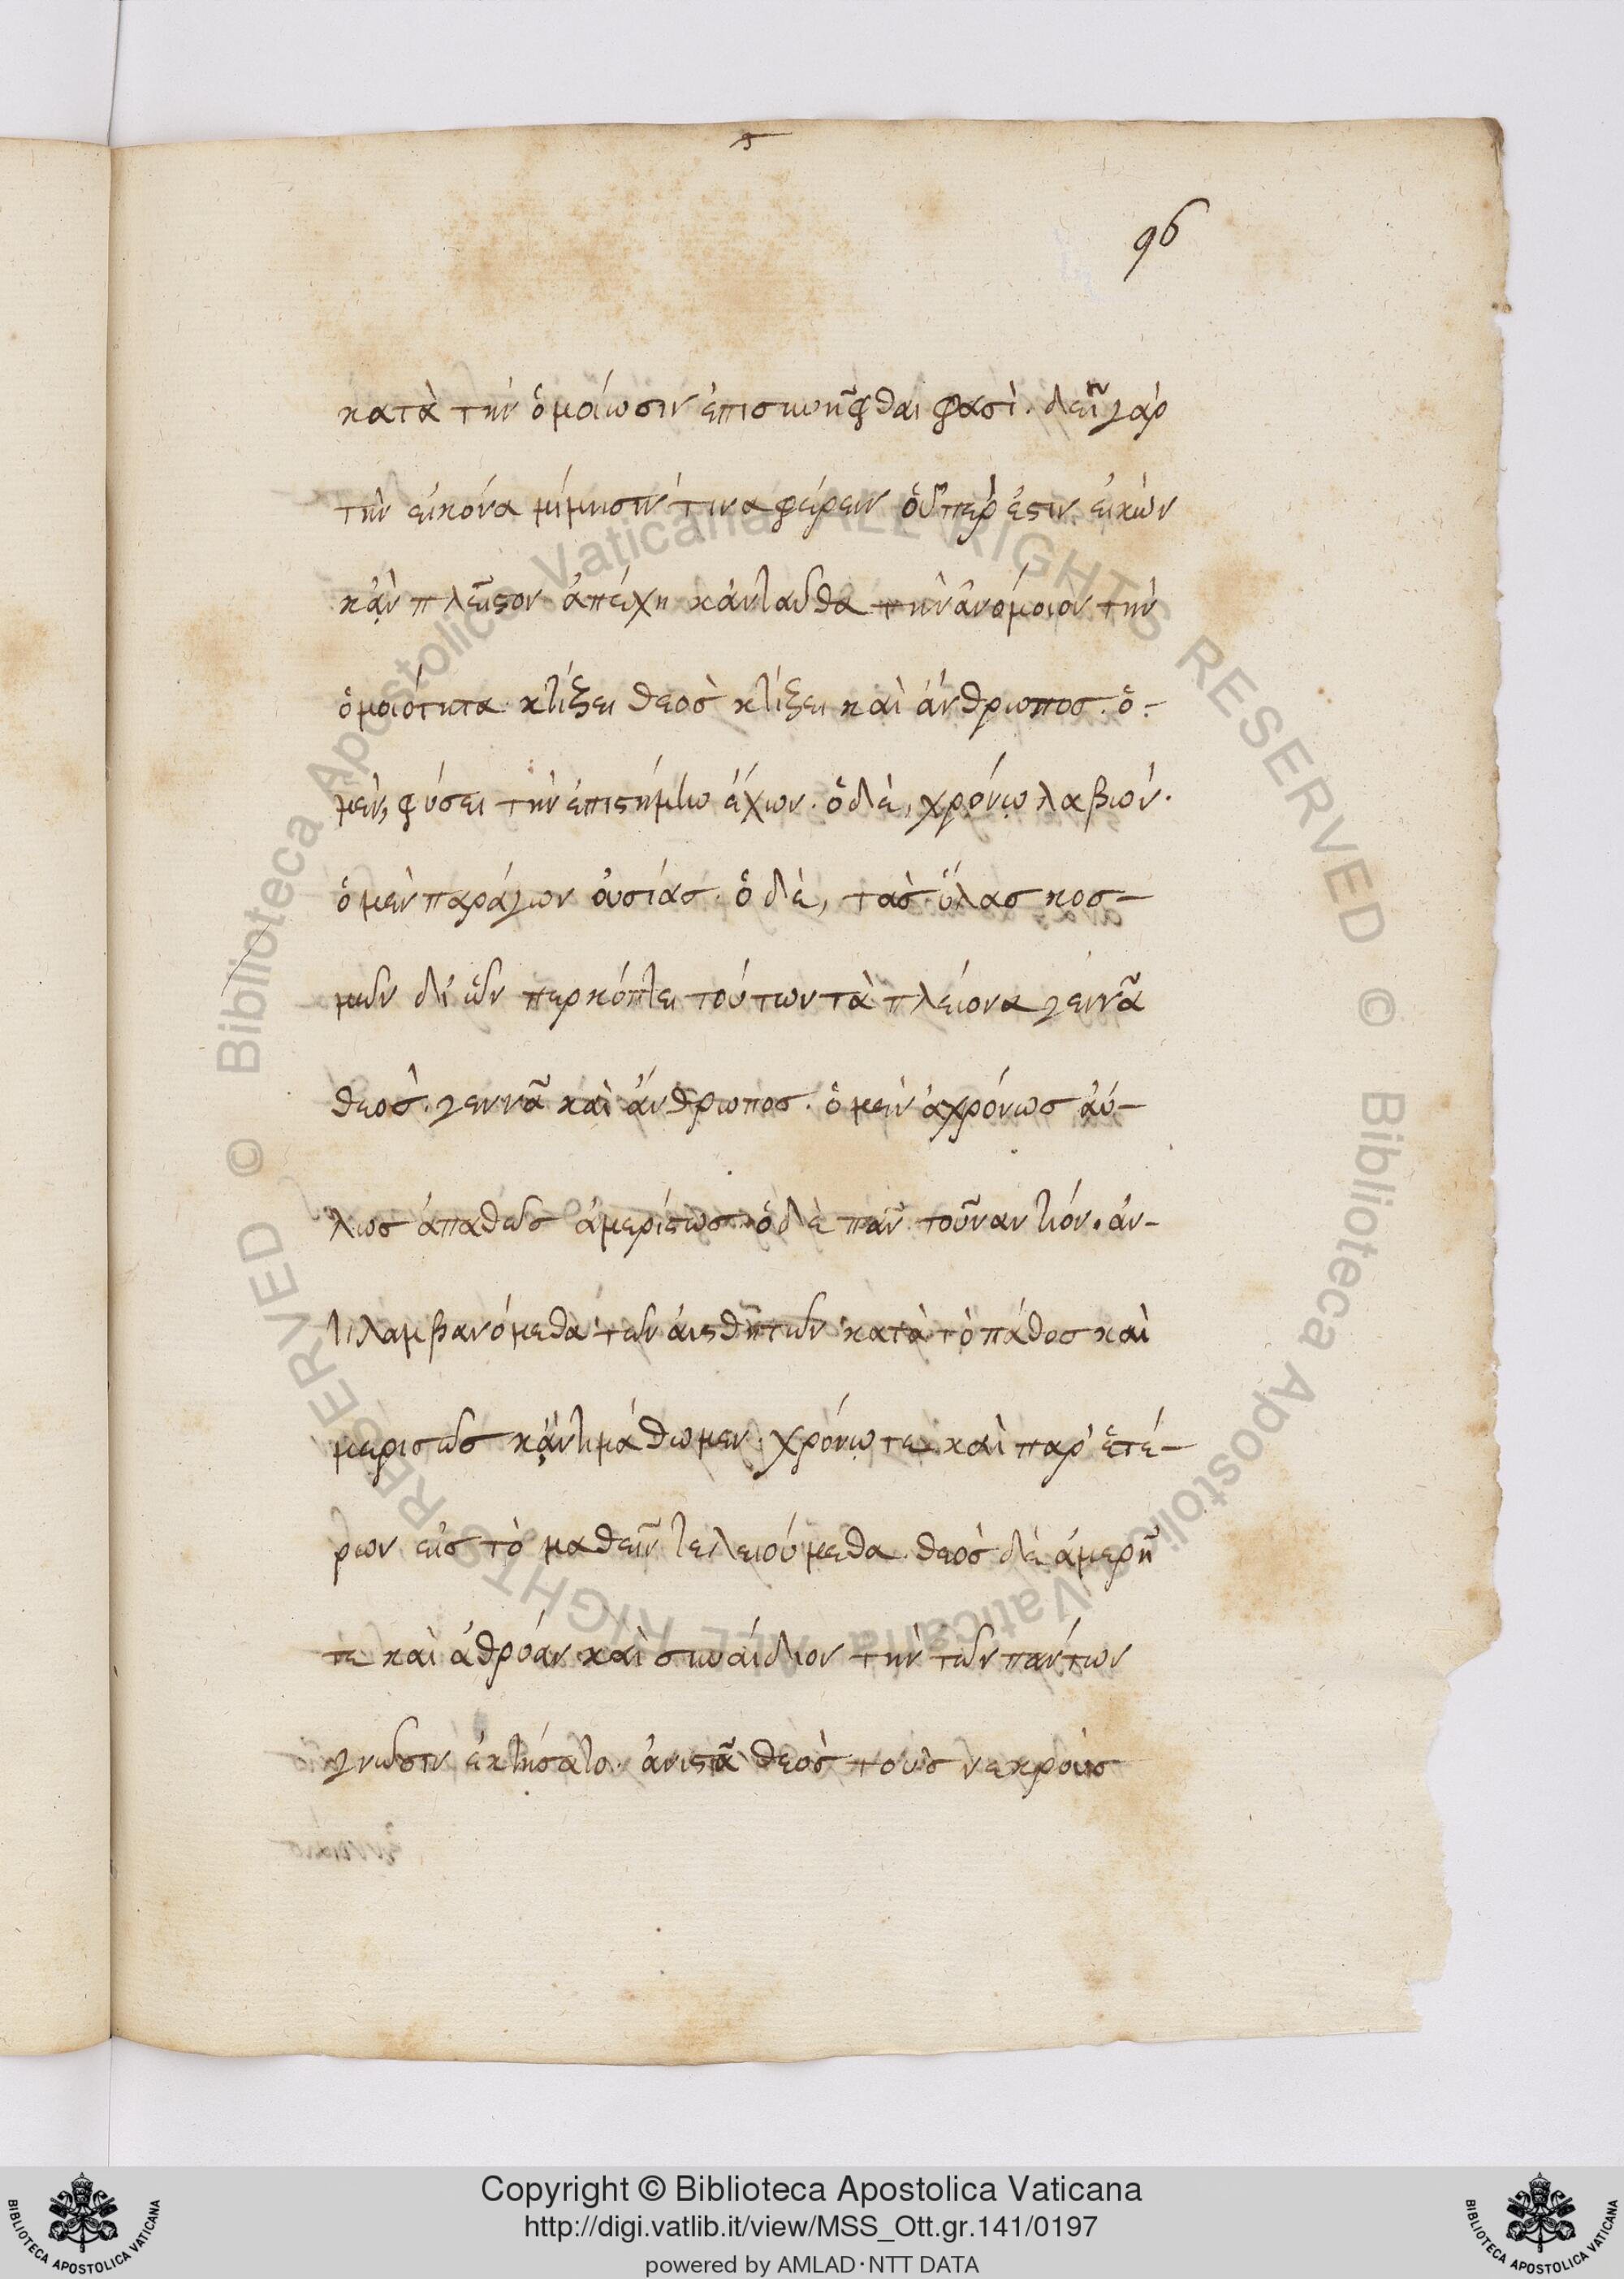 96
κατὰ τὴν ὁμοίωσιν ἐπισυνῆφθαι φασὶ. δεῖν γὰρ
τὴν εἰκόνα μίμησίν τινα φέρειν οὗπερ ἐστιν εἰκὼν
κἂν πλεῖστον ἀπέχη κἀνταῦθα τὴν ἀνόμοιον τὴν
ὁμοιότητα κτίζει θεοσ κτίζει καὶ ἄνθρωποσ. ὁ
μεν, φύσει τὴν ἐπιστήμην ἔχων. ὁ δὲ, χρόνῳ λαβών.
ὁ μεν παράγων οὐσίασ. ὁ δὲ, τασ ὕλασ κοσ-
μῶν δι' ὧν περκόπτει τούτων τὰ πλείονα γεννᾶ
θεοσ. γεννᾶ καὶ ἄνθρωποσ. ὁ μεν ἀχρόνωσ ἀύ-
λωσ ἀπαθῶσ ἀμερίστωσ. ὁ δὲ πᾶν τοῦναντιόν. ἀν-
τιλαμβανόμεθα τῶν αἰσθητῶν κατὰ τὸ πάθοσ καὶ
μεριστῶσ κἄν τι μάθωμεν. χρόνῳ τε καὶ παρ' ἑτέ-
ρων εἰσ τὸ μαθεῖν τελειούμεθα. θεὸσ δὲ ἀμερῆ
τε καὶ ἀθρόαν καὶ συναίδιον τὴν τῶν πάντων
γνῶσιν ἐκτήσατο. ἀνιστᾶ θεὸσ τουσ νεκρουσ
Copyright © Biblioteca Apostolica Vaticana
http://digi.vatlib.it/view/MSS_Ott.gr.141/0197
powered by AMLAD·NTT DATA
BIBLIOTECA APOSTOLICA VATICANA
BIBLIOTECA APOSTOLICA VATICANA
© Biblioteca Apostolica Vaticana ALL RIGHTS RESERVED
© Biblioteca Apostolica Vaticana ALL RIGHTS RESERVED